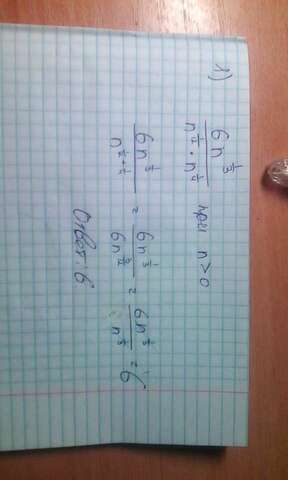 1) 6n^(1/3) / (n^(1/12) · n^(1/4)) при n>0
6n^(1/3) / n^(1/12 + 1/4) = 6n^(1/3) / 6n^(4/12) = 6n^(1/3) / n^(1/3) = 6
Ответ: 6